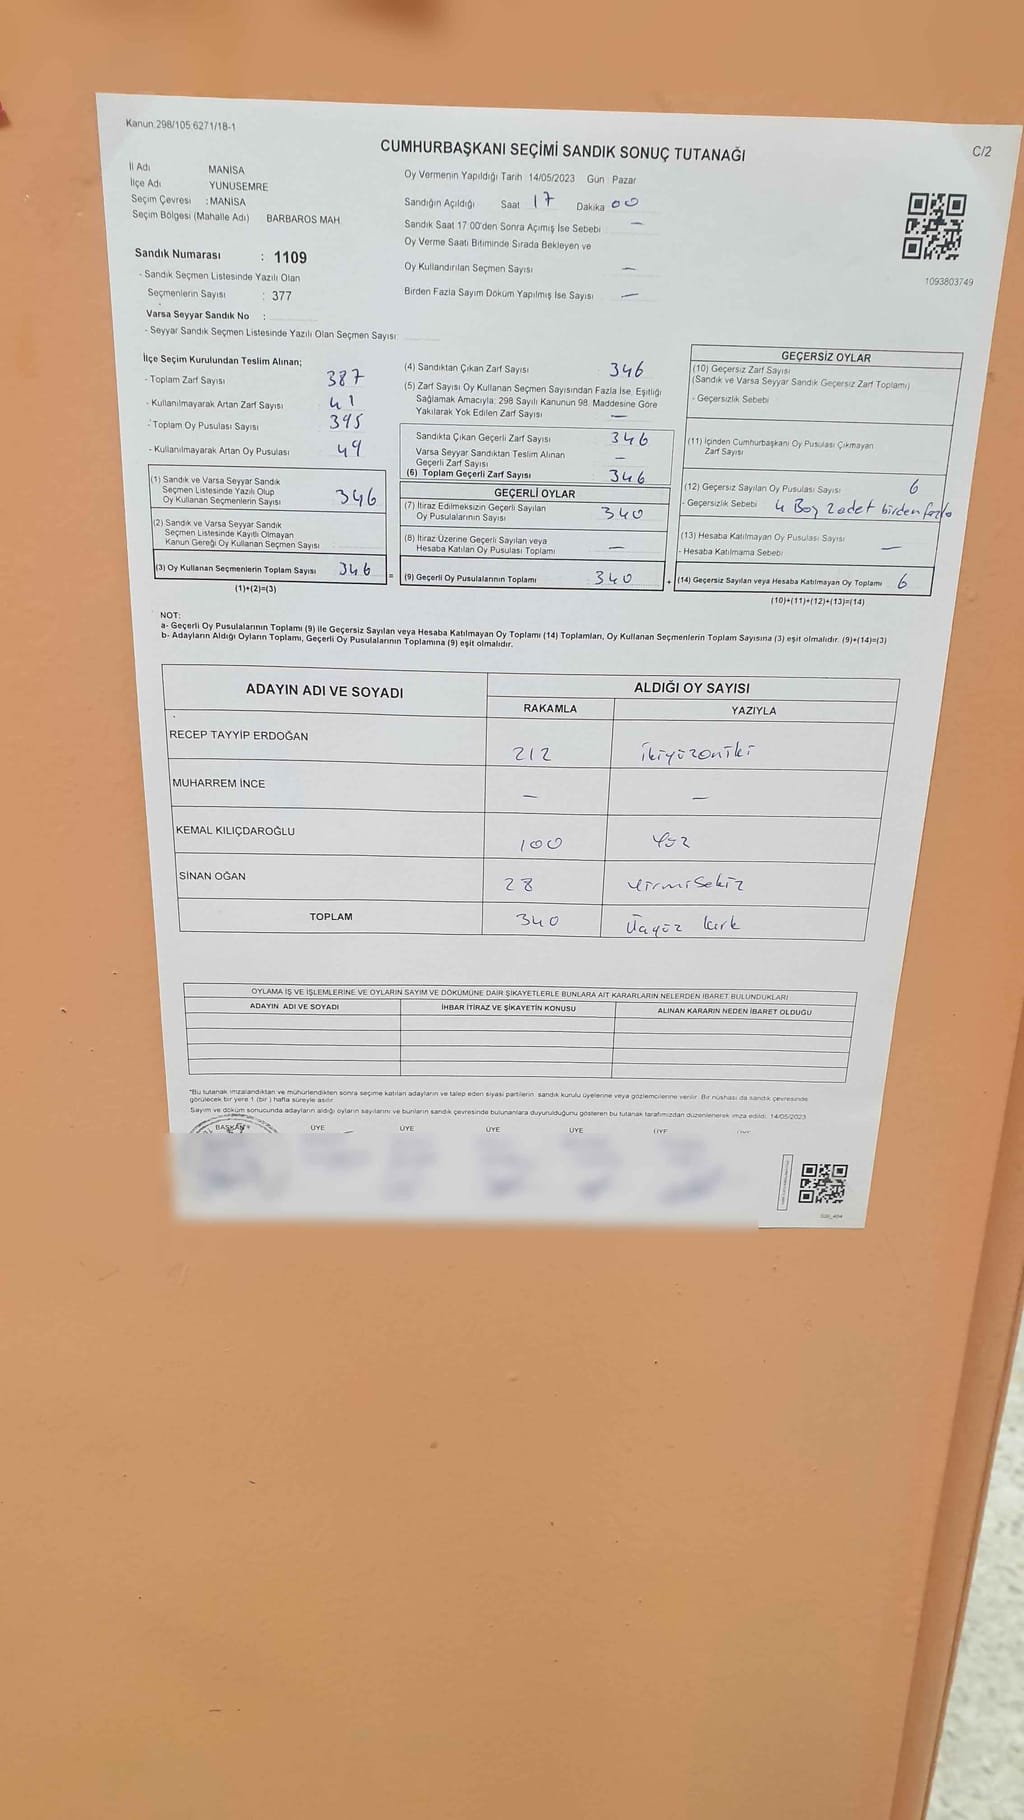 Kanun.298/105.6271/18-1
C/2
CUMHURBAŞKANI SEÇİMİ SANDIK SONUÇ TUTANAĞI
İl Adı MANİSA
İlçe Adı YUNUSEMRE
Seçim Çevresi : MANİSA
Seçim Bölgesi (Mahalle Adı) BARBAROS MAH
Sandık Numarası : 1109
- Sandık Seçmen Listesinde Yazılı Olan
Seçmenlerin Sayısı : 377
Varsa Seyyar Sandık No :
- Seyyar Sandık Seçmen Listesinde Yazılı Olan Seçmen Sayısı:
Oy Vermenin Yapıldığı Tarih : 14/05/2023 Gün : Pazar
Sandığın Açıldığı Saat 17 Dakika 00
Sandık Saat 17:00'den Sonra Açımış İse Sebebi —
Oy Verme Saati Bitiminde Sırada Bekleyen ve
Oy Kullandırılan Seçmen Sayısı —
Birden Fazla Sayım Döküm Yapılmış İse Sayısı —
1093803749
İlçe Seçim Kurulundan Teslim Alınan;
- Toplam Zarf Sayısı 387
- Kullanılmayarak Artan Zarf Sayısı 41
- Toplam Oy Pusulası Sayısı 395
- Kullanılmayarak Artan Oy Pusulası 49
(1) Sandık ve Varsa Seyyar Sandık
Seçmen Listesinde Yazılı Olup
Oy Kullanan Seçmenlerin Sayısı 346
(2) Sandık ve Varsa Seyyar Sandık
Seçmen Listesinde Kayıtlı Olmayan
Kanun Gereği Oy Kullanan Seçmen Sayısı :
(3) Oy Kullanan Seçmenlerin Toplam Sayısı 346
(1)+(2)=(3)
(4) Sandıktan Çıkan Zarf Sayısı 346
(5) Zarf Sayısı Oy Kullanan Seçmen Sayısından Fazla İse, Eşitliği
Sağlamak Amacıyla; 298 Sayılı Kanunun 98. Maddesine Göre
Yakılarak Yok Edilen Zarf Sayısı —
Sandıkta Çıkan Geçerli Zarf Sayısı 346
Varsa Seyyar Sandıktan Teslim Alınan
Geçerli Zarf Sayısı —
(6) Toplam Geçerli Zarf Sayısı 346
GEÇERLİ OYLAR
(7) İtiraz Edilmeksizin Geçerli Sayılan
Oy Pusulalarının Sayısı 340
(8) İtiraz Üzerine Geçerli Sayılan veya
Hesaba Katılan Oy Pusulası Toplamı —
= (9) Geçerli Oy Pusulalarının Toplamı 340 +
GEÇERSİZ OYLAR
(10) Geçersiz Zarf Sayısı
(Sandık ve Varsa Seyyar Sandık Geçersiz Zarf Toplamı)
- Geçersizlik Sebebi
(11) İçinden Cumhurbaşkanı Oy Pusulası Çıkmayan
Zarf Sayısı
(12) Geçersiz Sayılan Oy Pusulası Sayısı 6
- Geçersizlik Sebebi 4 Boş 2 adet birden fazla
(13) Hesaba Katılmayan Oy Pusulası Sayısı —
- Hesaba Katılmama Sebebi
(14) Geçersiz Sayılan veya Hesaba Katılmayan Oy Toplamı 6
(10)+(11)+(12)+(13)=(14)
NOT:
a- Geçerli Oy Pusulalarının Toplamı (9) ile Geçersiz Sayılan veya Hesaba Katılmayan Oy Toplamı (14) Toplamları, Oy Kullanan Seçmenlerin Toplam Sayısına (3) eşit olmalıdır. (9)+(14)=(3)
b- Adayların Aldığı Oyların Toplamı, Geçerli Oy Pusulalarının Toplamına (9) eşit olmalıdır.
ADAYIN ADI VE SOYADI ALDIĞI OY SAYISI
RAKAMLA YAZIYLA
RECEP TAYYİP ERDOĞAN 212 ikiyüzoniki
MUHARREM İNCE — —
KEMAL KILIÇDAROĞLU 100 Yüz
SİNAN OĞAN 28 yirmisekiz
TOPLAM 340 Üçyüz kırk
OYLAMA İŞ VE İŞLEMLERİNE VE OYLARIN SAYIM VE DÖKÜMÜNE DAİR ŞİKAYETLERLE BUNLARA AİT KARARLARIN NELERDEN İBARET BULUNDUKLARI
ADAYIN ADI VE SOYADI İHBAR İTİRAZ VE ŞİKAYETİN KONUSU ALINAN KARARIN NEDEN İBARET OLDUĞU
*Bu tutanak imzalandıktan ve mühürlendikten sonra seçime katılan adayların ve talep eden siyasi partilerin, sandık kurulu üyelerine veya gözlemcilerine verilir. Bir nüshası da sandık çevresinde
görülecek bir yere 1 (bir ) hafta süreyle asılır.
Sayım ve döküm sonucunda adayların aldığı oyların sayılarını ve bunların sandık çevresinde bulunanlara duyurulduğunu gösteren bu tutanak tarafımızdan düzenlenerek imza edildi. 14/05/2023
BAŞKAN ÜYE ÜYE ÜYE ÜYE ÜYE